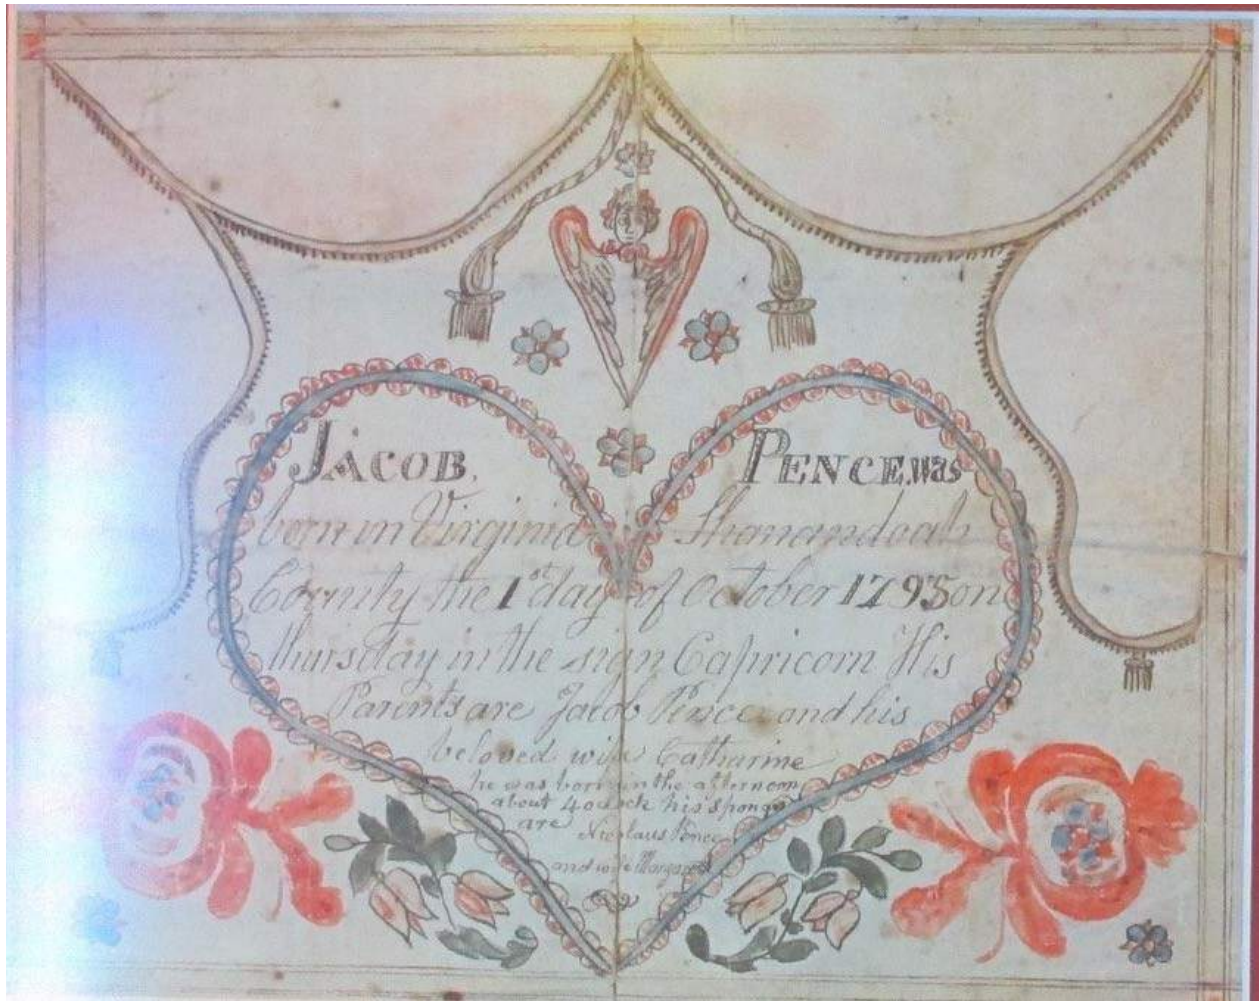 JACOB. PENCE. was
born in Virginia Shanandoah
County the 1st day of October 1795 on
thursday in the sign Capricorn His
Parents are Jacob Pence and his
beloved wife Catharine
he was born in the afternoon
about 4 oclock his sponsors
are Nicolaus Pence
and wife Margaret